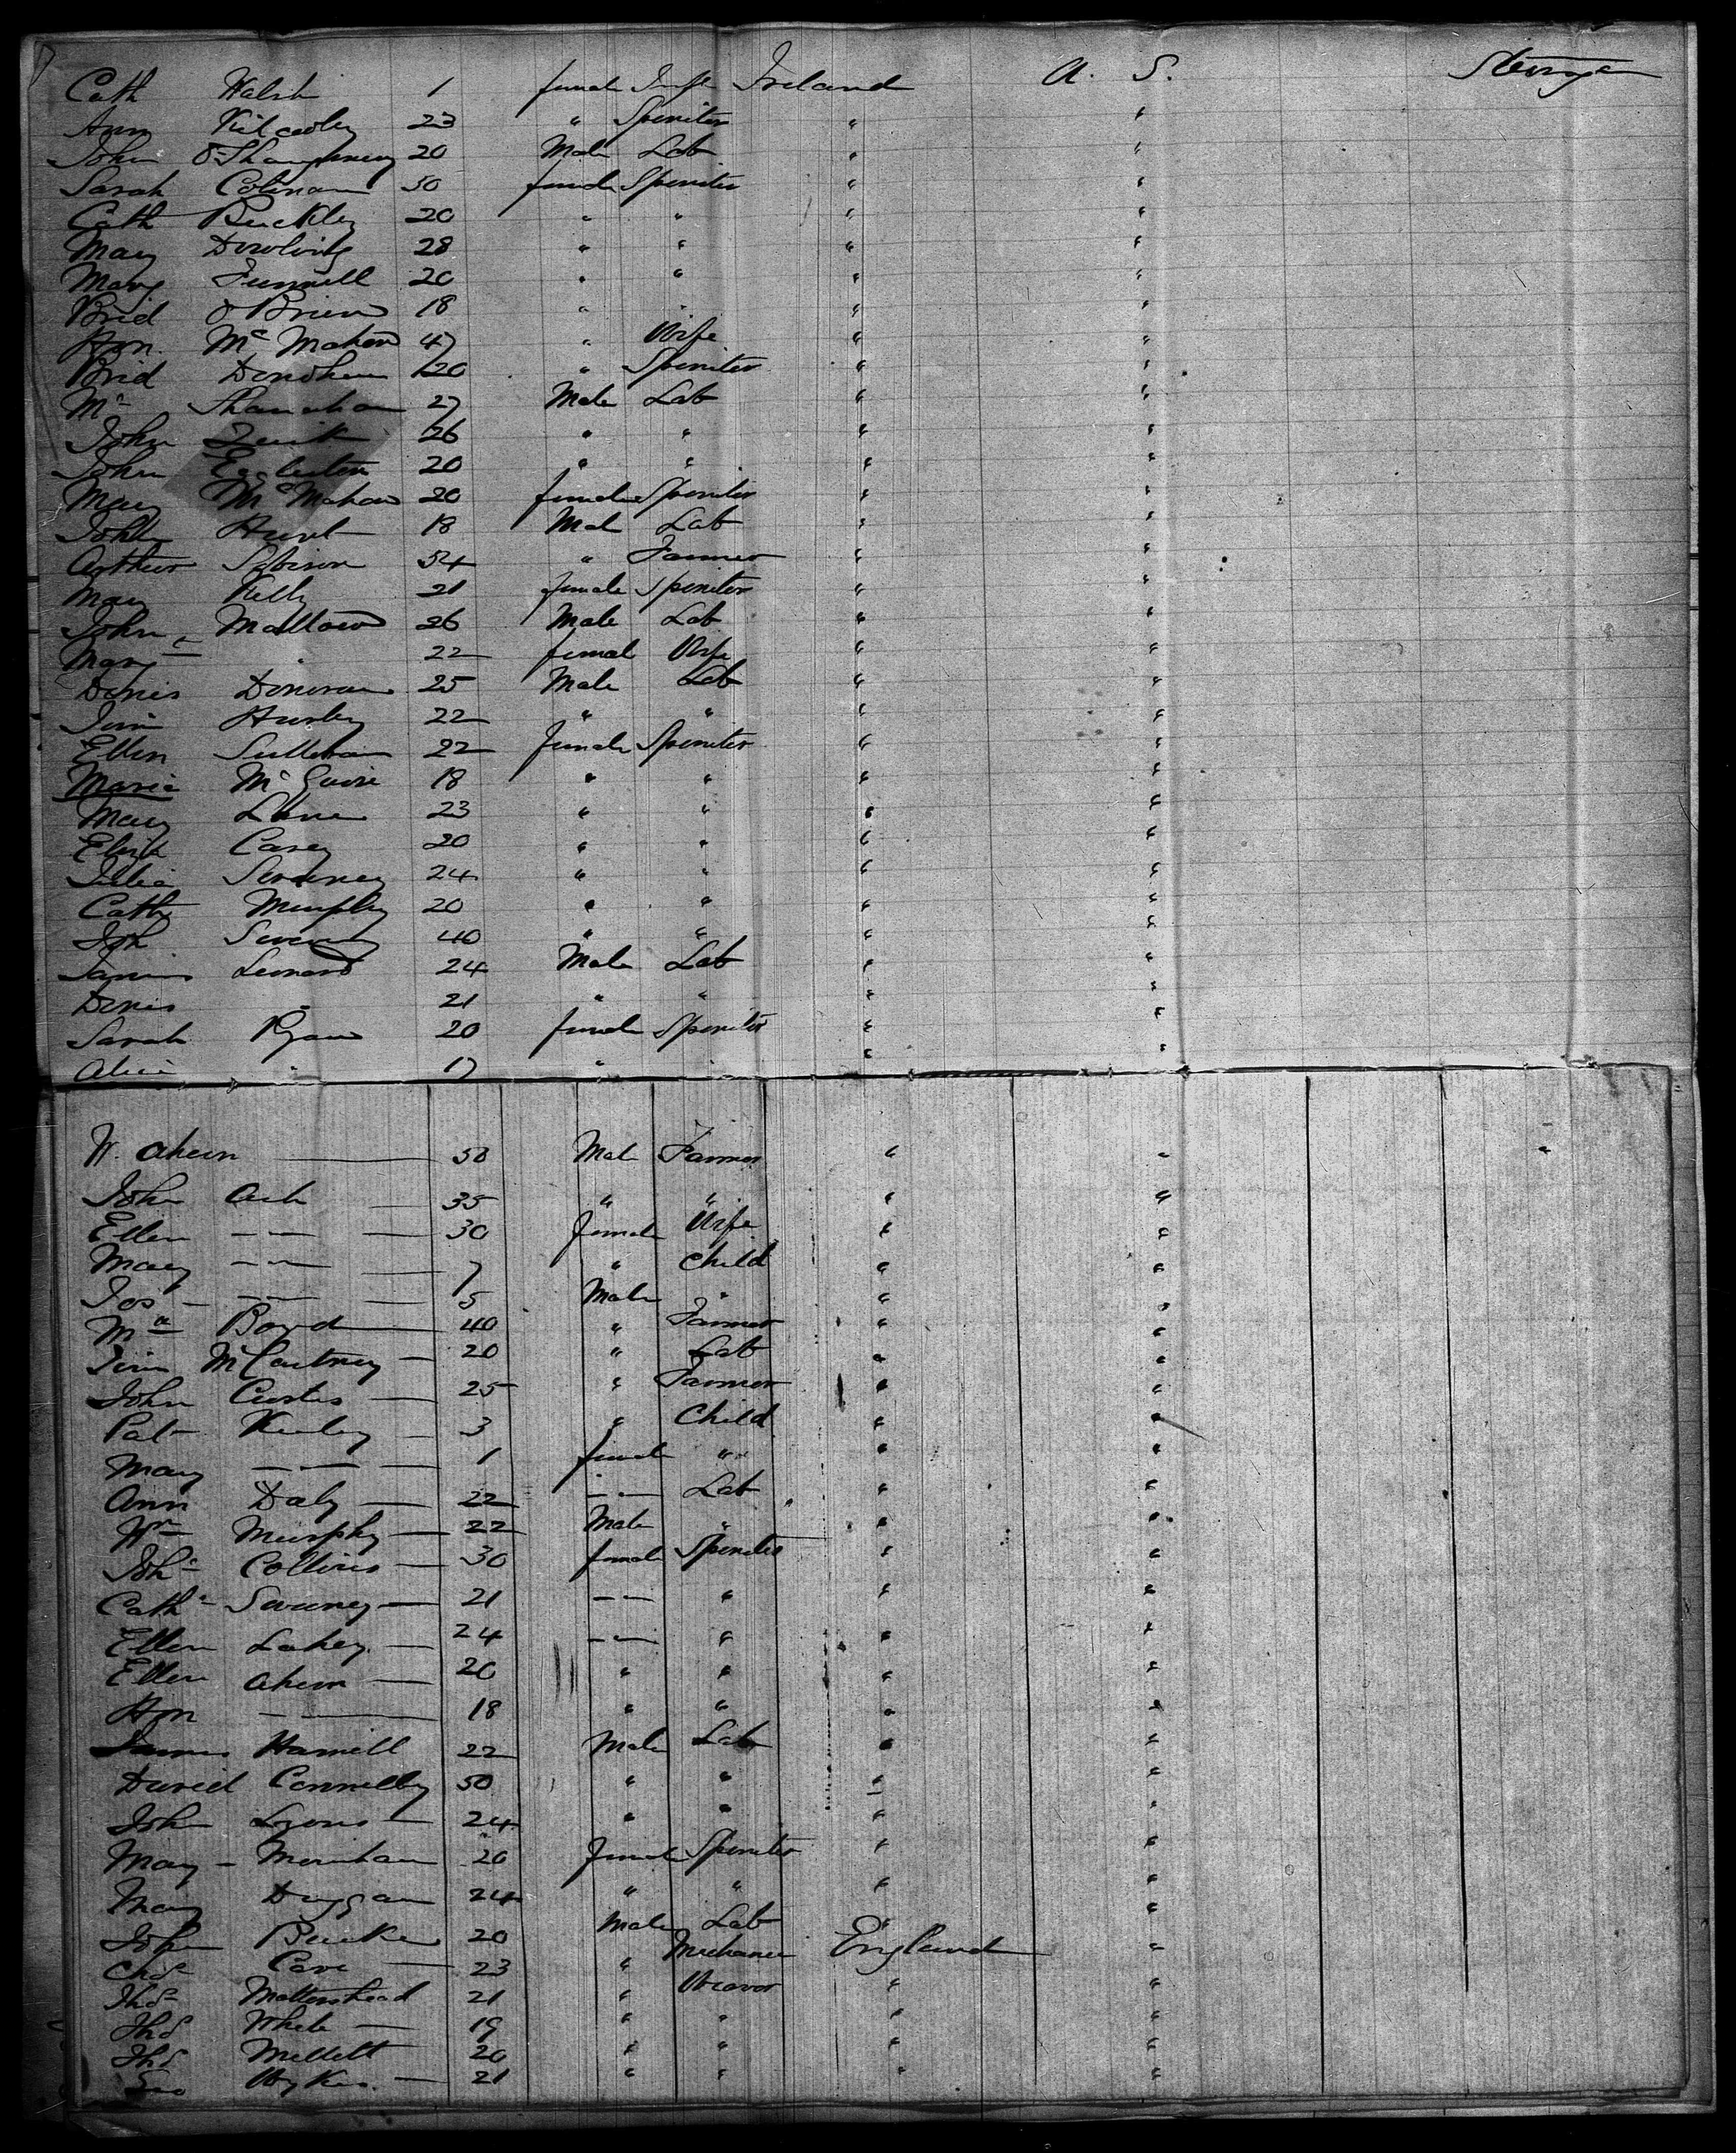 Cath Walsh 1 female Inft Ireland U. S. Steerage
Ann Kilcooley 23 " Spinster " "
John O'Shaughnessy 20 Male Lab " "
Sarah Colman 50 female Spinster " "
Cath Buckley 20 " " " "
Mary Dowling 28 " " " "
Mary Funnell 20 " " " "
Brid O Brien 18 " " "
Hon. McMahon 47 " Wife " "
Brid Donohue 20 " Spinster " "
Ml Shanahan 27 Male Lab " "
John Quirk 26 " " " "
John Eggleston 20 " " " "
Mary McMahon 20 female Spinster " "
John Hunt 18 Male Lab " "
Arthur 54 " Farmer " "
Mary Kelly 21 female Spinster " "
John Mallow 26 Male Lab " "
Mary " 22 female Wife " "
Denis Donovan 25 Male Lab " "
Jerri Hurley 22 " " " "
Ellen Sullivan 22 female Spinster " "
Maria McGuire 18 " " " "
Mary 23 " " " "
Elizth Casey 20 " " " "
Julia Sweeney 24 " " " "
Cath Murphy 20 " " " "
Joh Sweeney 40 " " " "
James Leonard 24 Male Lab " "
Denis " 21 " " " "
Sarah Ryan 20 female Spinster " "
Alice " 17 " " " "
W. Ahern 50 Male Farmer " " "
John Ash 35 " " " "
Ellen — — 30 female Wife " "
Mary — — 7 " Child " "
Jos — — 5 Male " " "
Boyd 40 " Farmer " "
Jerri McCartney 20 " Lab " "
John Curtis 25 " Farmer " "
Pat Kerley 3 " Child " "
Mary — — 1 female " " "
Ann Daly 22 — — Lab " "
Wm Murphy 22 Male " " "
Joha Collins 30 female Spinster " "
Catha Sweeney 21 — — " " "
Ellen Lahey 24 — — " " "
Ellen Ahern 20 " " " "
Hon — — 18 " " " "
James Hamill 22 Male Lab " "
David Connelly 50 " " " "
John Lyons 24 " " " "
Mary Moynihan 20 female Spinster " "
Mary Duggan 24 " " " "
John Burke 20 Male Lab " "
Chas Cave 23 " Mechanic England "
Thos Mottershead 21 " Weaver " "
Thos White 19 " " " "
Thos Mellett 20 " " " "
Geo Wykes 21 " " " "